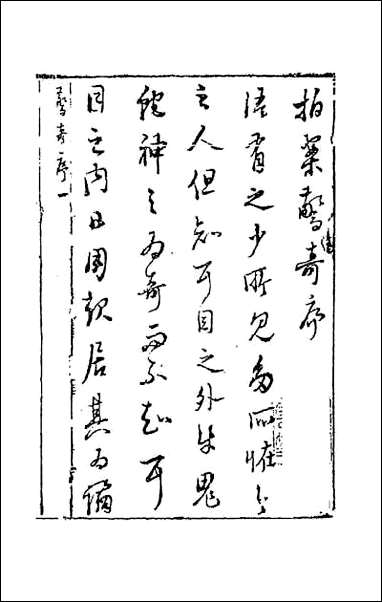 拍案驚奇序
語有之少所見多所恠今
之人但知耳目之外牛鬼
蛇神之為奇而不知耳
目之內日用起居其為譎
驚奇序一